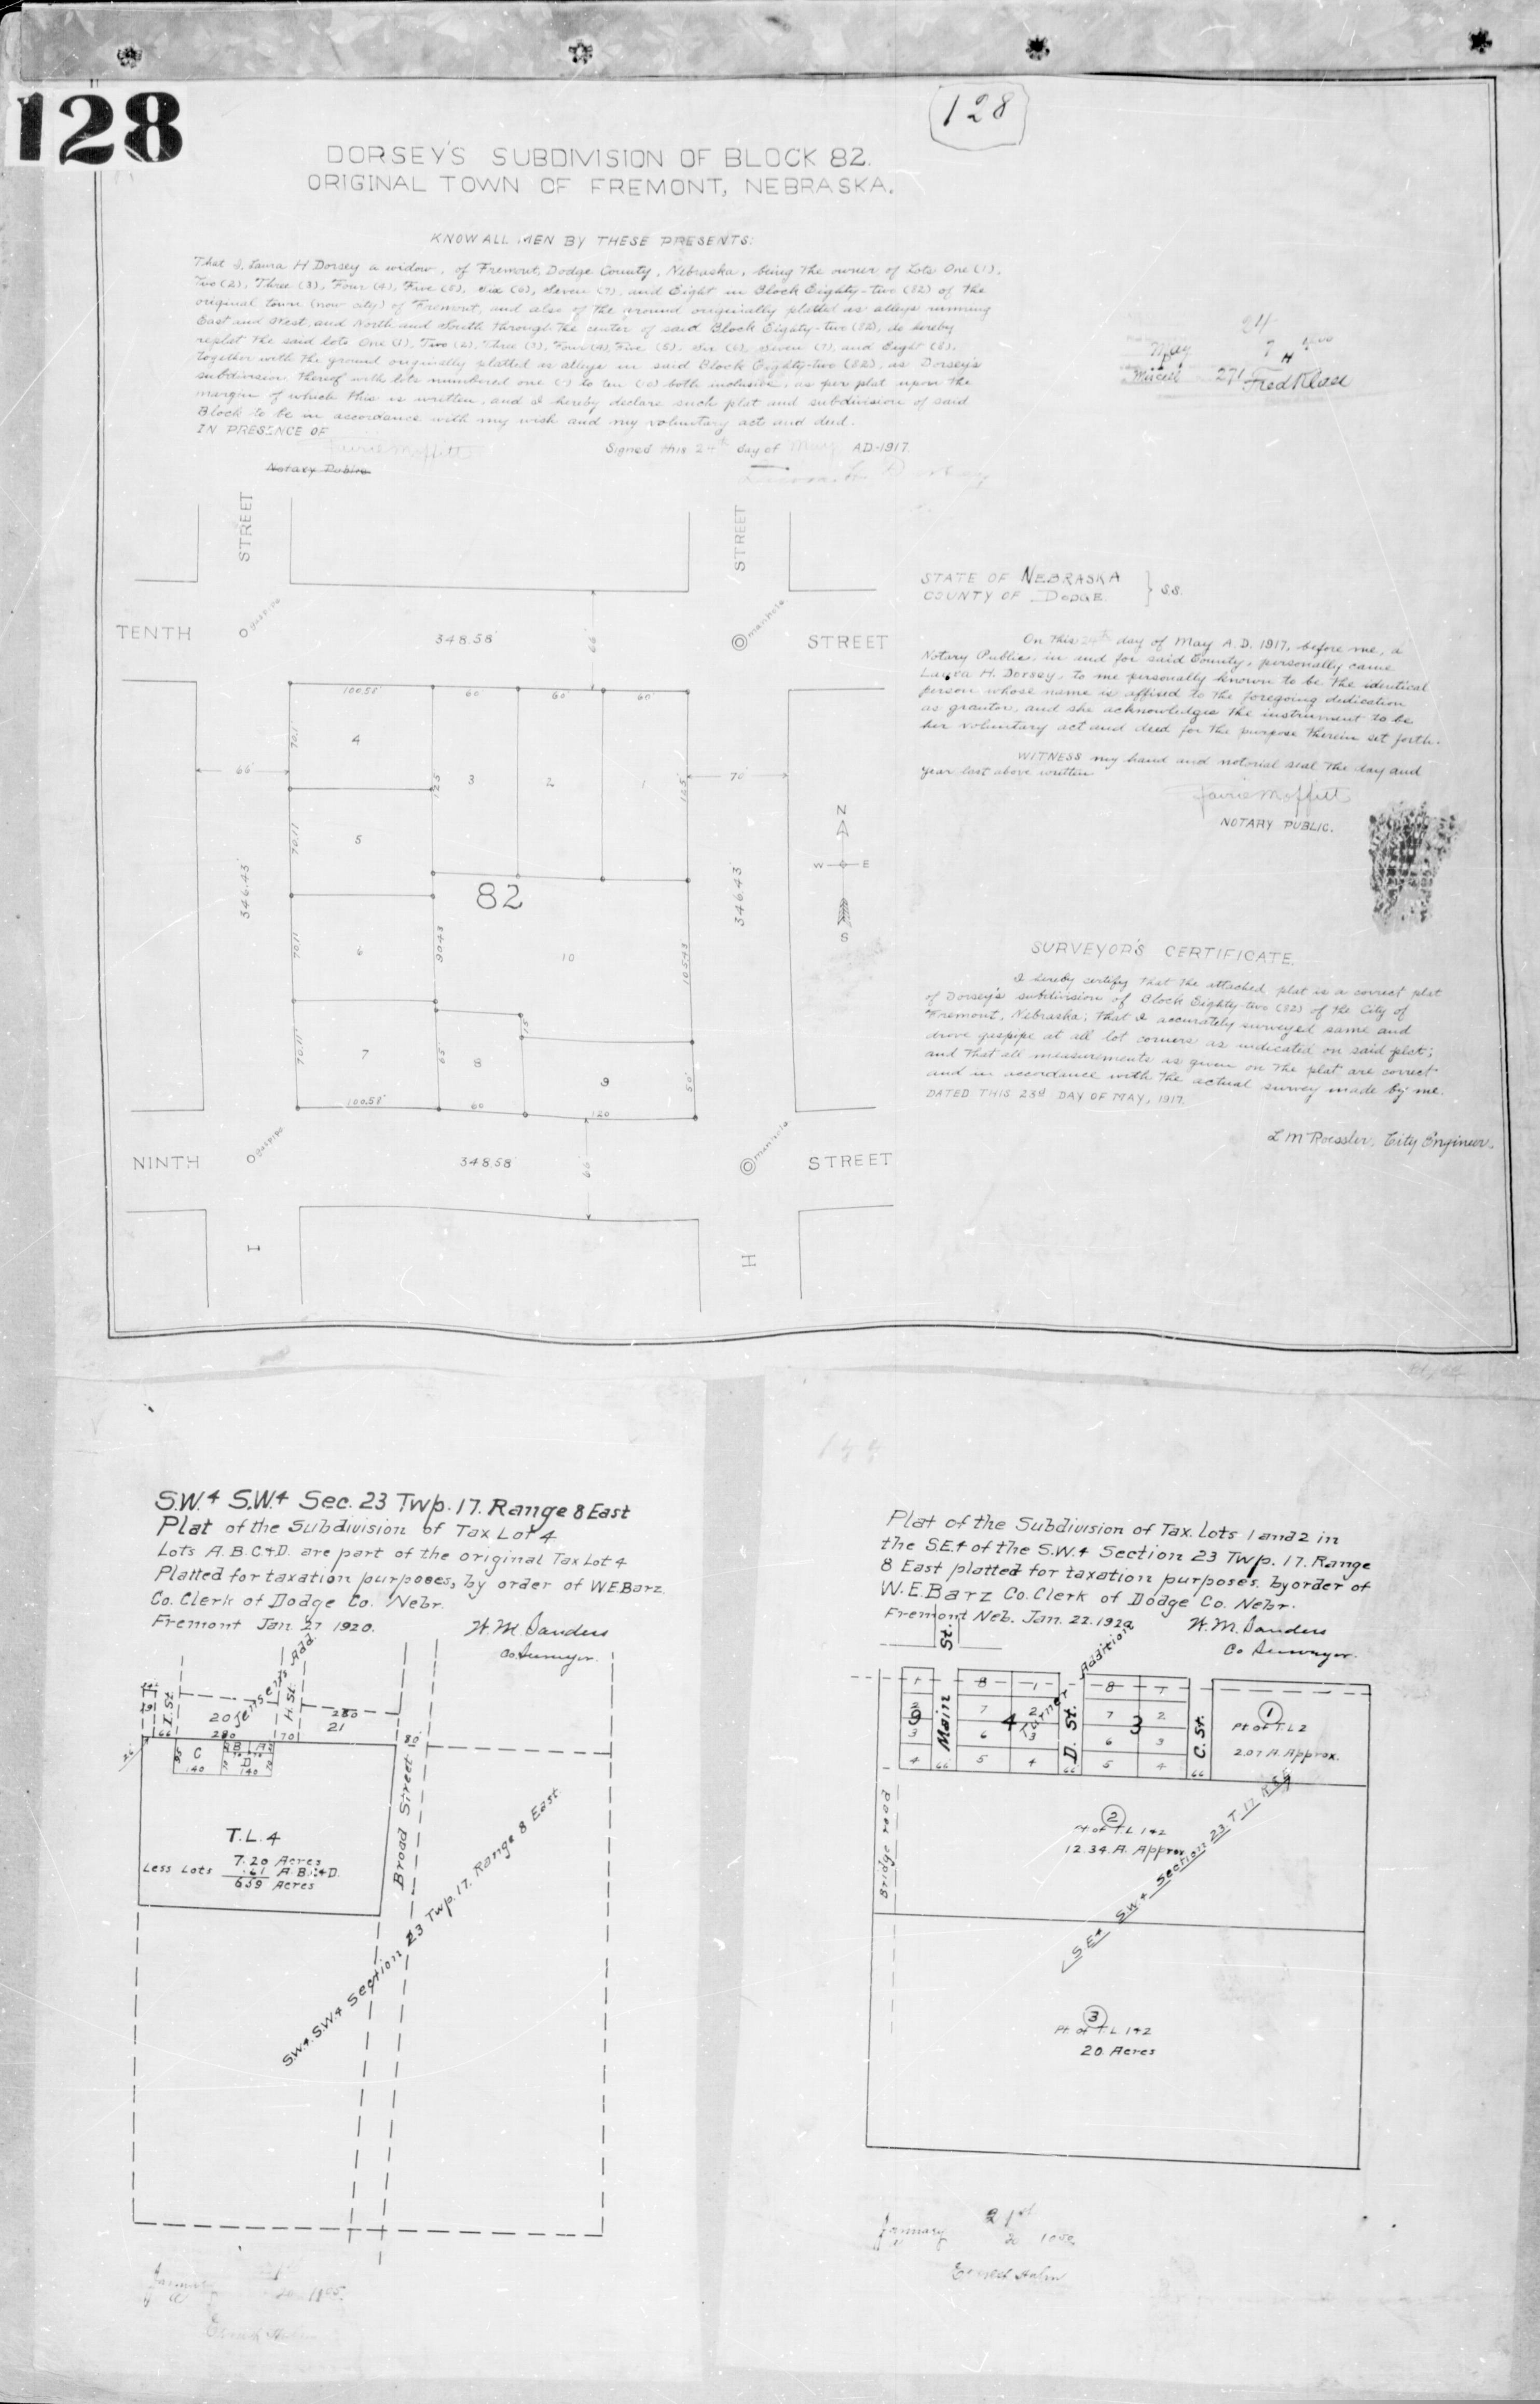 128
128
DORSEY'S SUBDIVISION OF BLOCK 82.
ORIGINAL TOWN OF FREMONT, NEBRASKA.
KNOW ALL MEN BY THESE PRESENTS:
That I, Laura H Dorsey a widow, of Fremont, Dodge County, Nebraska, being the owner of Lots One (1),
Two (2), Three (3), Four (4), Five (5), Six (6), Seven (7), and Eight in Block Eighty-two (82) of the
original town (now city) of Fremont, and also of the ground originally platted as alleys running
East and West, and North and South through the center of said Block Eighty-two (82), do hereby
replat the said lots One (1), Two (2), Three (3), Four (4), Five (5), Six (6), Seven (7), and Eight (8),
together with the ground originally platted as alleys in said Block Eighty-two (82), as Dorsey's
subdivision thereof with lots numbered one (1) to ten (10) both inclusive, as per plat upon the
margin of which this is written, and I hereby declare such plat and subdivision of said
Block to be in accordance with my wish and my voluntary act and deed.
IN PRESENCE OF
Signed this 24th day of May A.D. 1917.
Fairie Moffitt
Notary Public
Laura H Dorsey
24
May 7
Miscel 271 Fred Klase
STREET
STREET
TENTH
gaspipe
348.58'
66'
manhole
STREET
100.58' 60 60 60'
70.1
4
3
2
1
125
125
66'
70'
70.11
5
N
W E
S
346.43'
82
346.43'
70.11
6
90.43
10
105.43
70.11'
7
65'
8
15
9
50'
100.58' 60 120
NINTH
gaspipe
348.58'
66'
manhole
STREET
I
H
STATE OF NEBRASKA
COUNTY OF DODGE } S.S.
On this 24th day of May A.D. 1917, before me, a
Notary Public, in and for said County, personally came
Laura H. Dorsey, to me personally known to be the identical
person whose name is affixed to the foregoing dedication
as grantor, and she acknowledges the instrument to be
her voluntary act and deed for the purpose therein set forth.
WITNESS my hand and notorial seal the day and
year last above written
Fairie Moffitt
NOTARY PUBLIC.
SURVEYOR'S CERTIFICATE.
I hereby certify that the attached plat is a correct plat
of Dorsey's subdivision of Block Eighty-two (82) of the City of
Fremont, Nebraska; that I accurately surveyed same and
drove gaspipe at all lot corners as indicated on said plat;
and that all measurements as given on the plat are correct
and in accordance with the actual survey made by me.
DATED THIS 23d DAY OF MAY, 1917.
L M Roessler, City Engineer.
S.W.4 S.W.4 Sec. 23 Twp. 17. Range 8 East
Plat of the Subdivision of Tax Lot 4
Lots A.B.C.&D. are part of the original Tax Lot 4
Platted for taxation purposes, by order of W.E.Barz
Co. Clerk of Dodge Co. Nebr.
Fremont Jan. 27 1920.
W. M. Sanders
Co Surveyor.
19
I St.
20
Jensen's Add.
H. St.
280
21
66
280
70
80
C
B
A
D
140
140
Broad Street
T.L. 4
7.20 Acres
Less Lots .61 A.B.C.&D.
6.59 Acres
S.W.4. S.W.4 Section 23 Twp. 17. Range 8 East
Plat of the Subdivision of Tax. Lots 1 and 2 in
the S.E.4 of the S.W.4 Section 23 Twp. 17. Range
8 East platted for taxation purposes. by order of
W.E.Barz Co. Clerk of Dodge Co. Nebr.
Fremont Neb. Jan. 22. 1920
W. M. Sanders
Co Surveyor.
St.
Addition
1 8 1 8 1
2 7 2 7 2
9 4 3
3 6 3 6 3
4 5 4 5 4
Main
Turner
D. St.
C. St.
66 66 66
1
Pt of T.L 2
2.07 A. Approx.
Bridge road
2
Pt of T.L 1&2
12.34. A. Approx
S.E.4 S.W.4 Section 23. T. 17 R 8 E
3
Pt. of T. L 1&2
20. Acres
January 21st